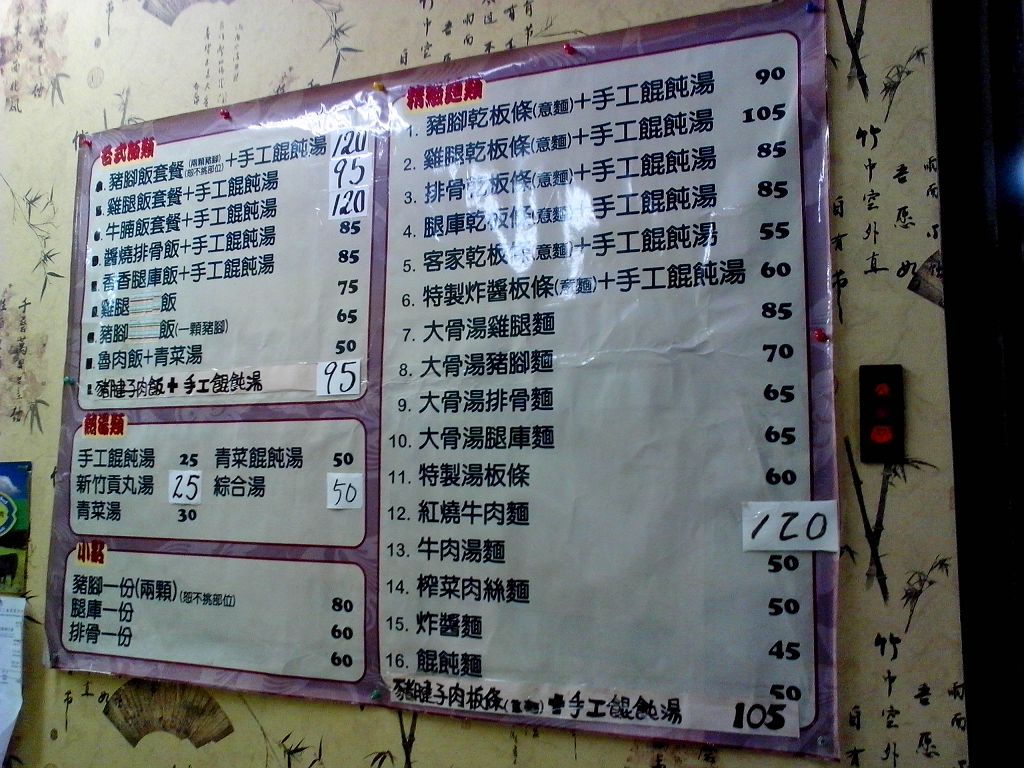 各式飯類
豬腳飯套餐(兩顆豬腳)(恕不挑部位)+手工餛飩湯 120
雞腿飯套餐+手工餛飩湯 95
牛腩飯套餐+手工餛飩湯 120
醬燒排骨飯+手工餛飩湯 85
香香腿庫飯+手工餛飩湯 85
雞腿 飯 75
豬腳 飯(一顆豬腳) 65
魯肉飯+青菜湯 50
豬腱子肉飯+手工餛飩湯 95
湯類
手工餛飩湯 25 青菜餛飩湯 50
新竹貢丸湯 25 綜合湯 50
青菜湯 30
小點
豬腳一份(兩顆)(恕不挑部位) 80
腿庫一份 60
排骨一份 60
精緻麵類
1. 豬腳乾板條(意麵)+手工餛飩湯 90
2. 雞腿乾板條(意麵)+手工餛飩湯 105
3. 排骨乾板條(意麵)+手工餛飩湯 85
4. 腿庫乾板條(意麵)+手工餛飩湯 85
5. 客家乾板條(意麵)+手工餛飩湯 55
6. 特製炸醬板條(意麵)+手工餛飩湯 60
7. 大骨湯雞腿麵 85
8. 大骨湯豬腳麵 70
9. 大骨湯排骨麵 65
10. 大骨湯腿庫麵 65
11. 特製湯板條 60
12. 紅燒牛肉麵 120
13. 牛肉湯麵 50
14. 榨菜肉絲麵 50
15. 炸醬麵 45
16. 餛飩麵 50
豬腱子肉板條(意麵)+手工餛飩湯 105
竹中空外直
吾愿如